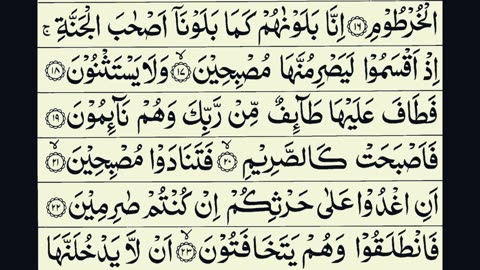 الْخُرْطُوْمِ ﴿۱۶﴾ اِنَّا بَلَوْنٰهُمْ كَمَا بَلَوْنَاۤ اَصْحٰبَ الْجَنَّةِ ۚ
اِذْ اَقْسَمُوْا لَيَصْرِمُنَّهَا مُصْبِحِيْنَ ۙ﴿۱۷﴾ وَلَا يَسْتَثْنُوْنَ ﴿۱۸﴾
فَطَافَ عَلَيْهَا طَآئِفٌ مِّنْ رَّبِّكَ وَهُمْ نَآئِمُوْنَ ﴿۱۹﴾
فَاَصْبَحَتْ كَالصَّرِيْمِ ۙ﴿۲۰﴾ فَتَنَادَوْا مُصْبِحِيْنَ ۙ﴿۲۱﴾
اَنِ اغْدُوْا عَلٰى حَرْثِكُمْ اِنْ كُنْتُمْ صٰرِمِيْنَ ﴿۲۲﴾
فَانْطَلَقُوْا وَهُمْ يَتَخَافَتُوْنَ ۙ﴿۲۳﴾ اَنْ لَّا يَدْخُلَنَّهَا